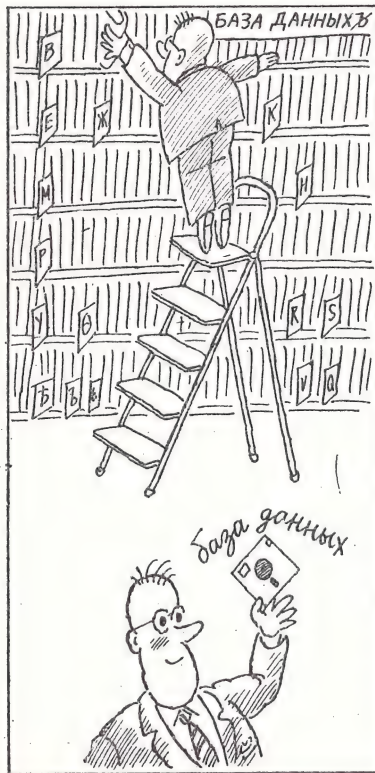 БАЗА ДАННЫХЪ
В
Е Ж К
М Н
Р
У Ѳ R S
Ѣ Ъ V Q
база данных